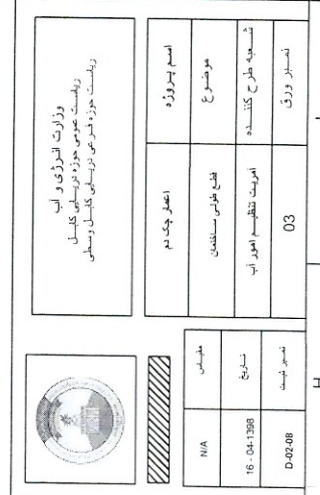 وزارت انرژی و آب
ریاست عمومی حوزه دریایی کابل
ریاست حوزه فرعی دریایی کابل وسطی
اسم پروژه
اعمار چک دم
موضوع
قطع طولی ساختمان
شعبه طرح کننده
آمریت تنظیم امور آب
نمبر ورق
03
مقیاس
N/A
تاریخ
16 - 04-1398
نمبر ثبت
D-02-08